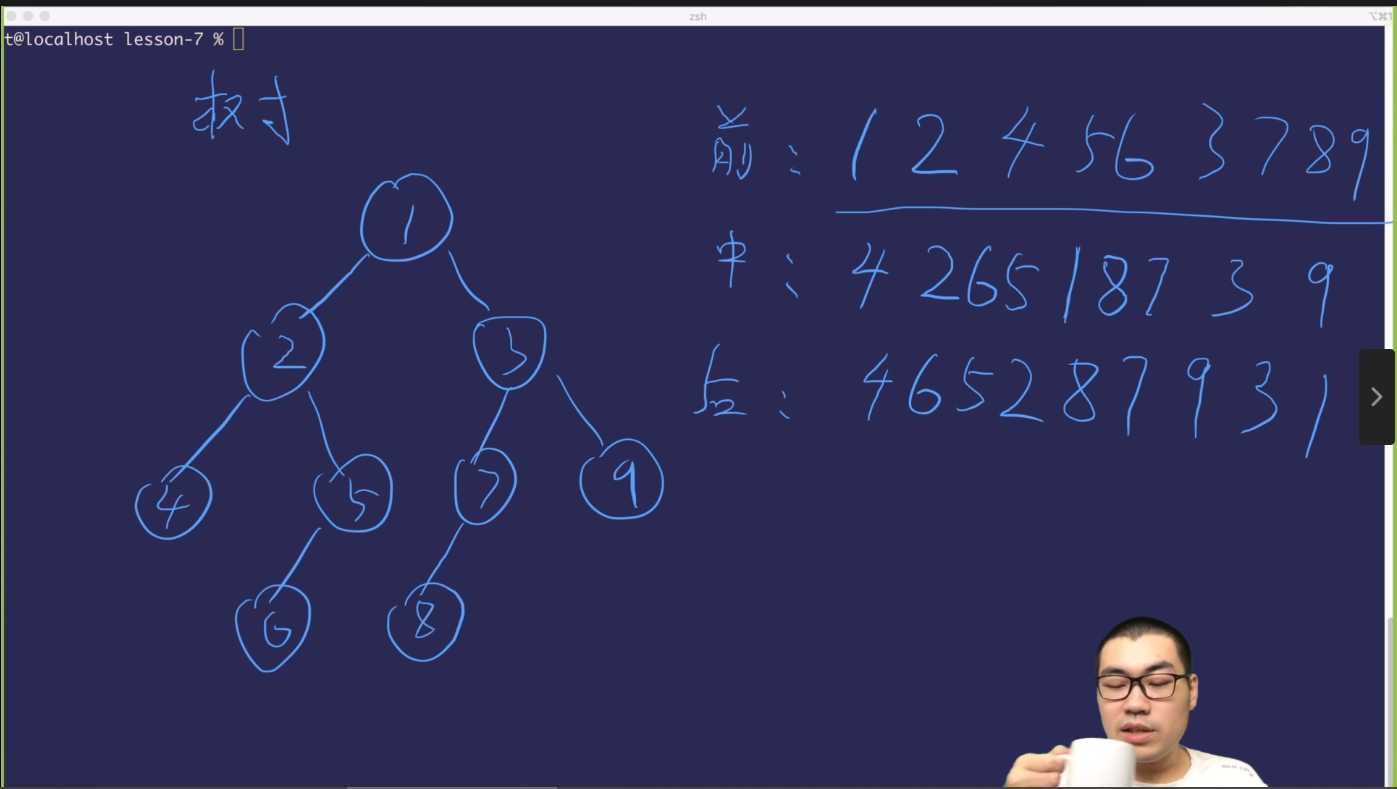 zsh
⌥⌘1
t@localhost lesson-7 %
树
1
2 3
4 5 7 9
6 8
前: 1 2 4 5 6 3 7 8 9
中: 4 2 6 5 1 8 7 3 9
后: 4 6 5 2 8 7 9 3 1